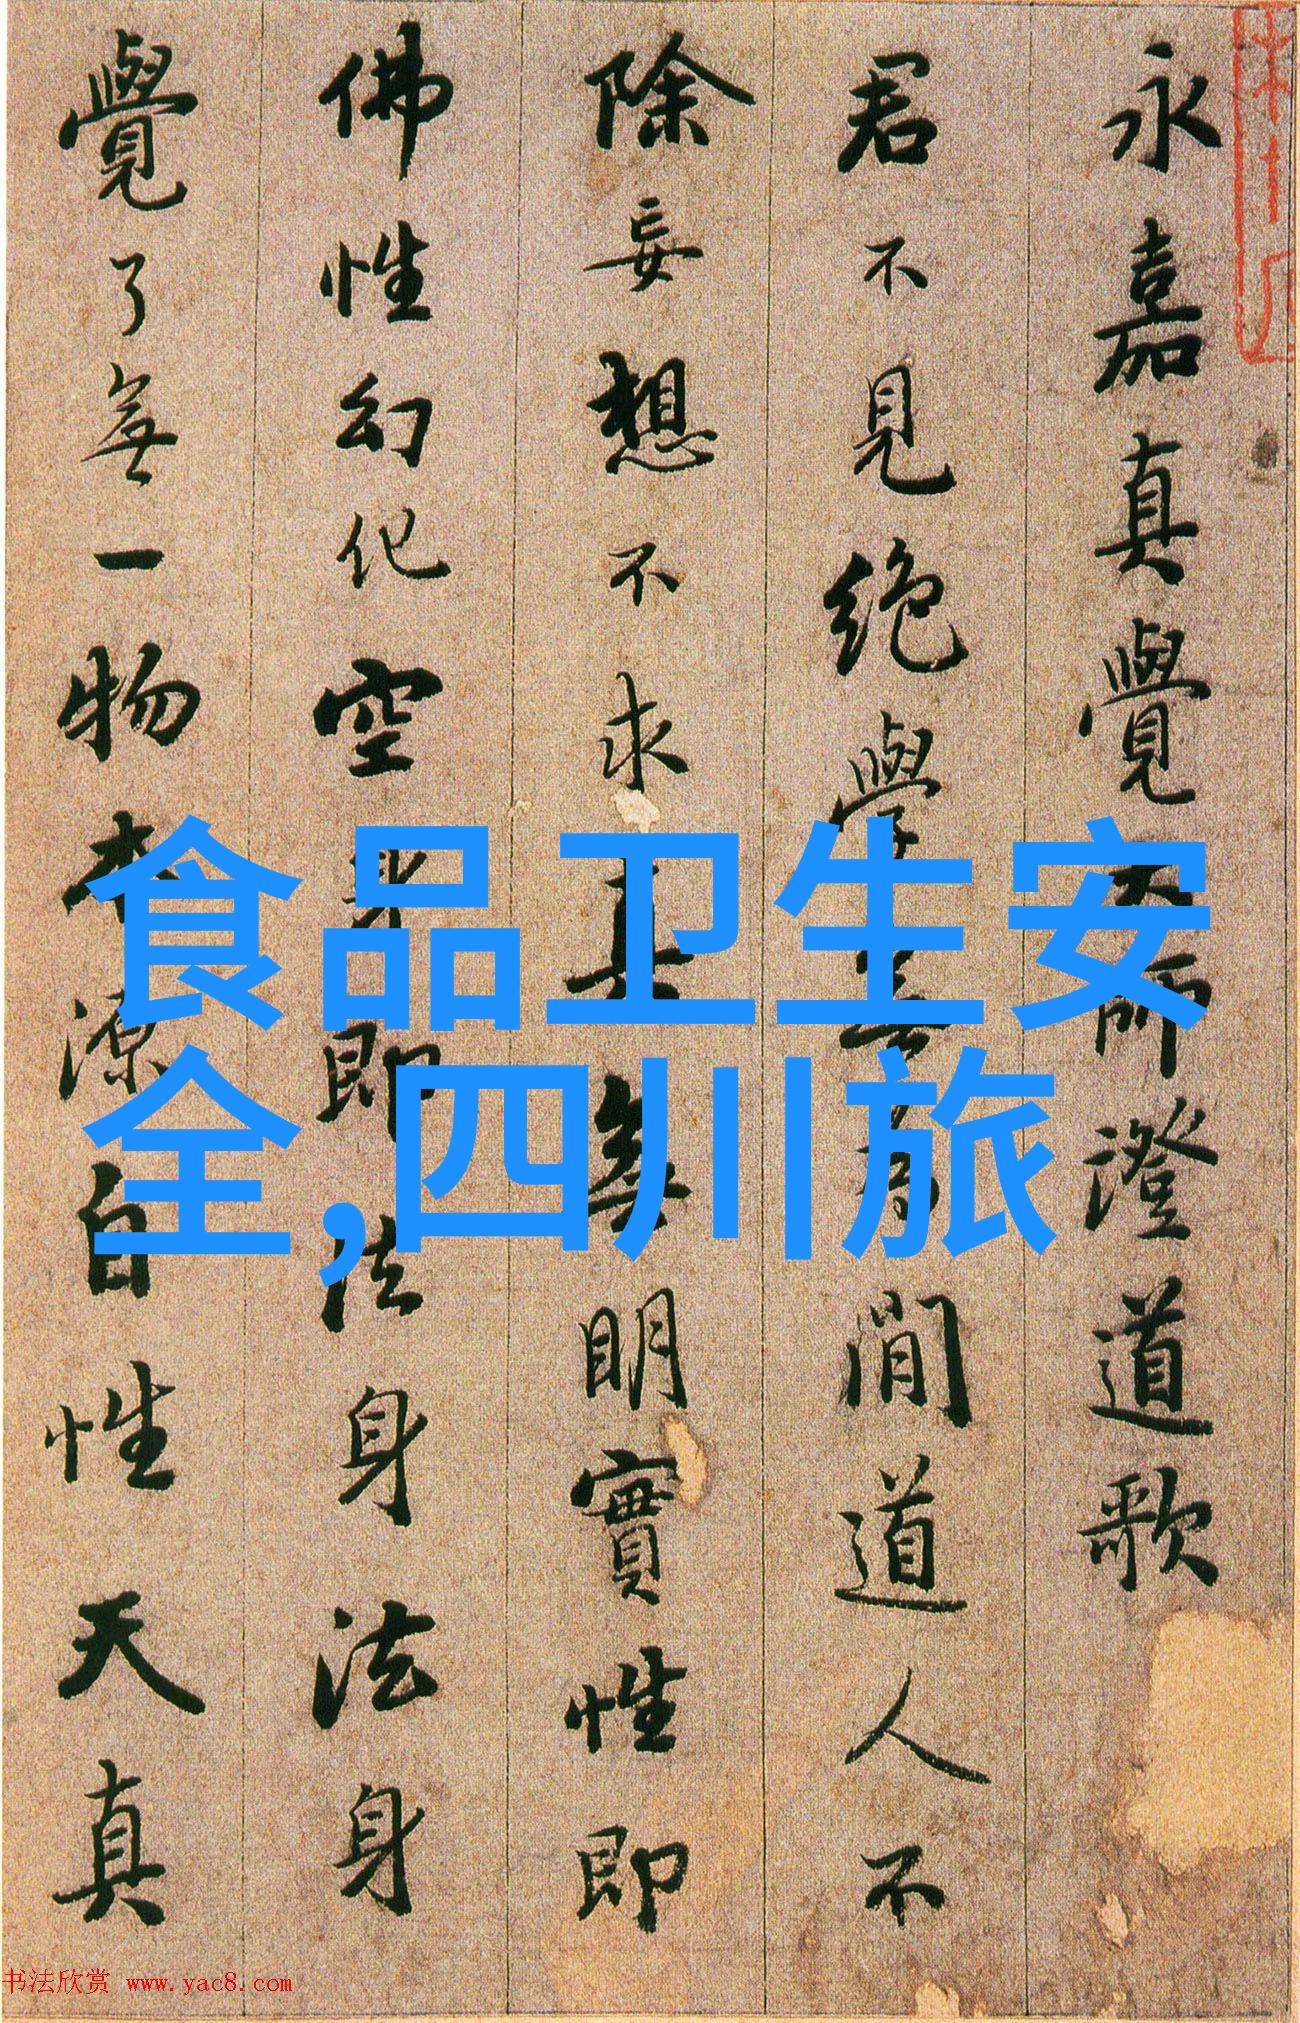 永嘉真覺大師澄道歌
君不見絕學無為閒道人不
除妄想不求真無明實性即
佛性幻化空身即法身法身
覺了無一物本源自性天真
食品卫生安
全,四川旅
书法欣赏 www.yac8.com